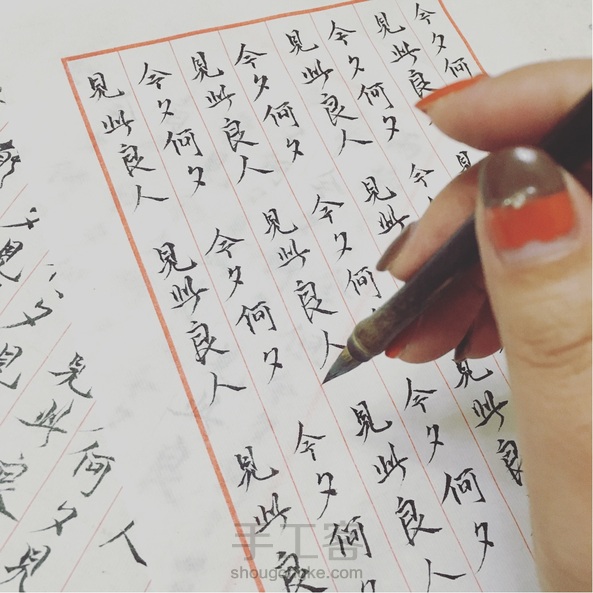 今夕何
見此良
今夕何夕今夕
見此良人見此見此良
今夕何夕今夕何今夕何夕
見此良人見此良人見此良人
今夕何夕今夕何夕今夕何夕
見此良人見此良人見此良
人
何夕見
見此良
手工客
shougongke.com